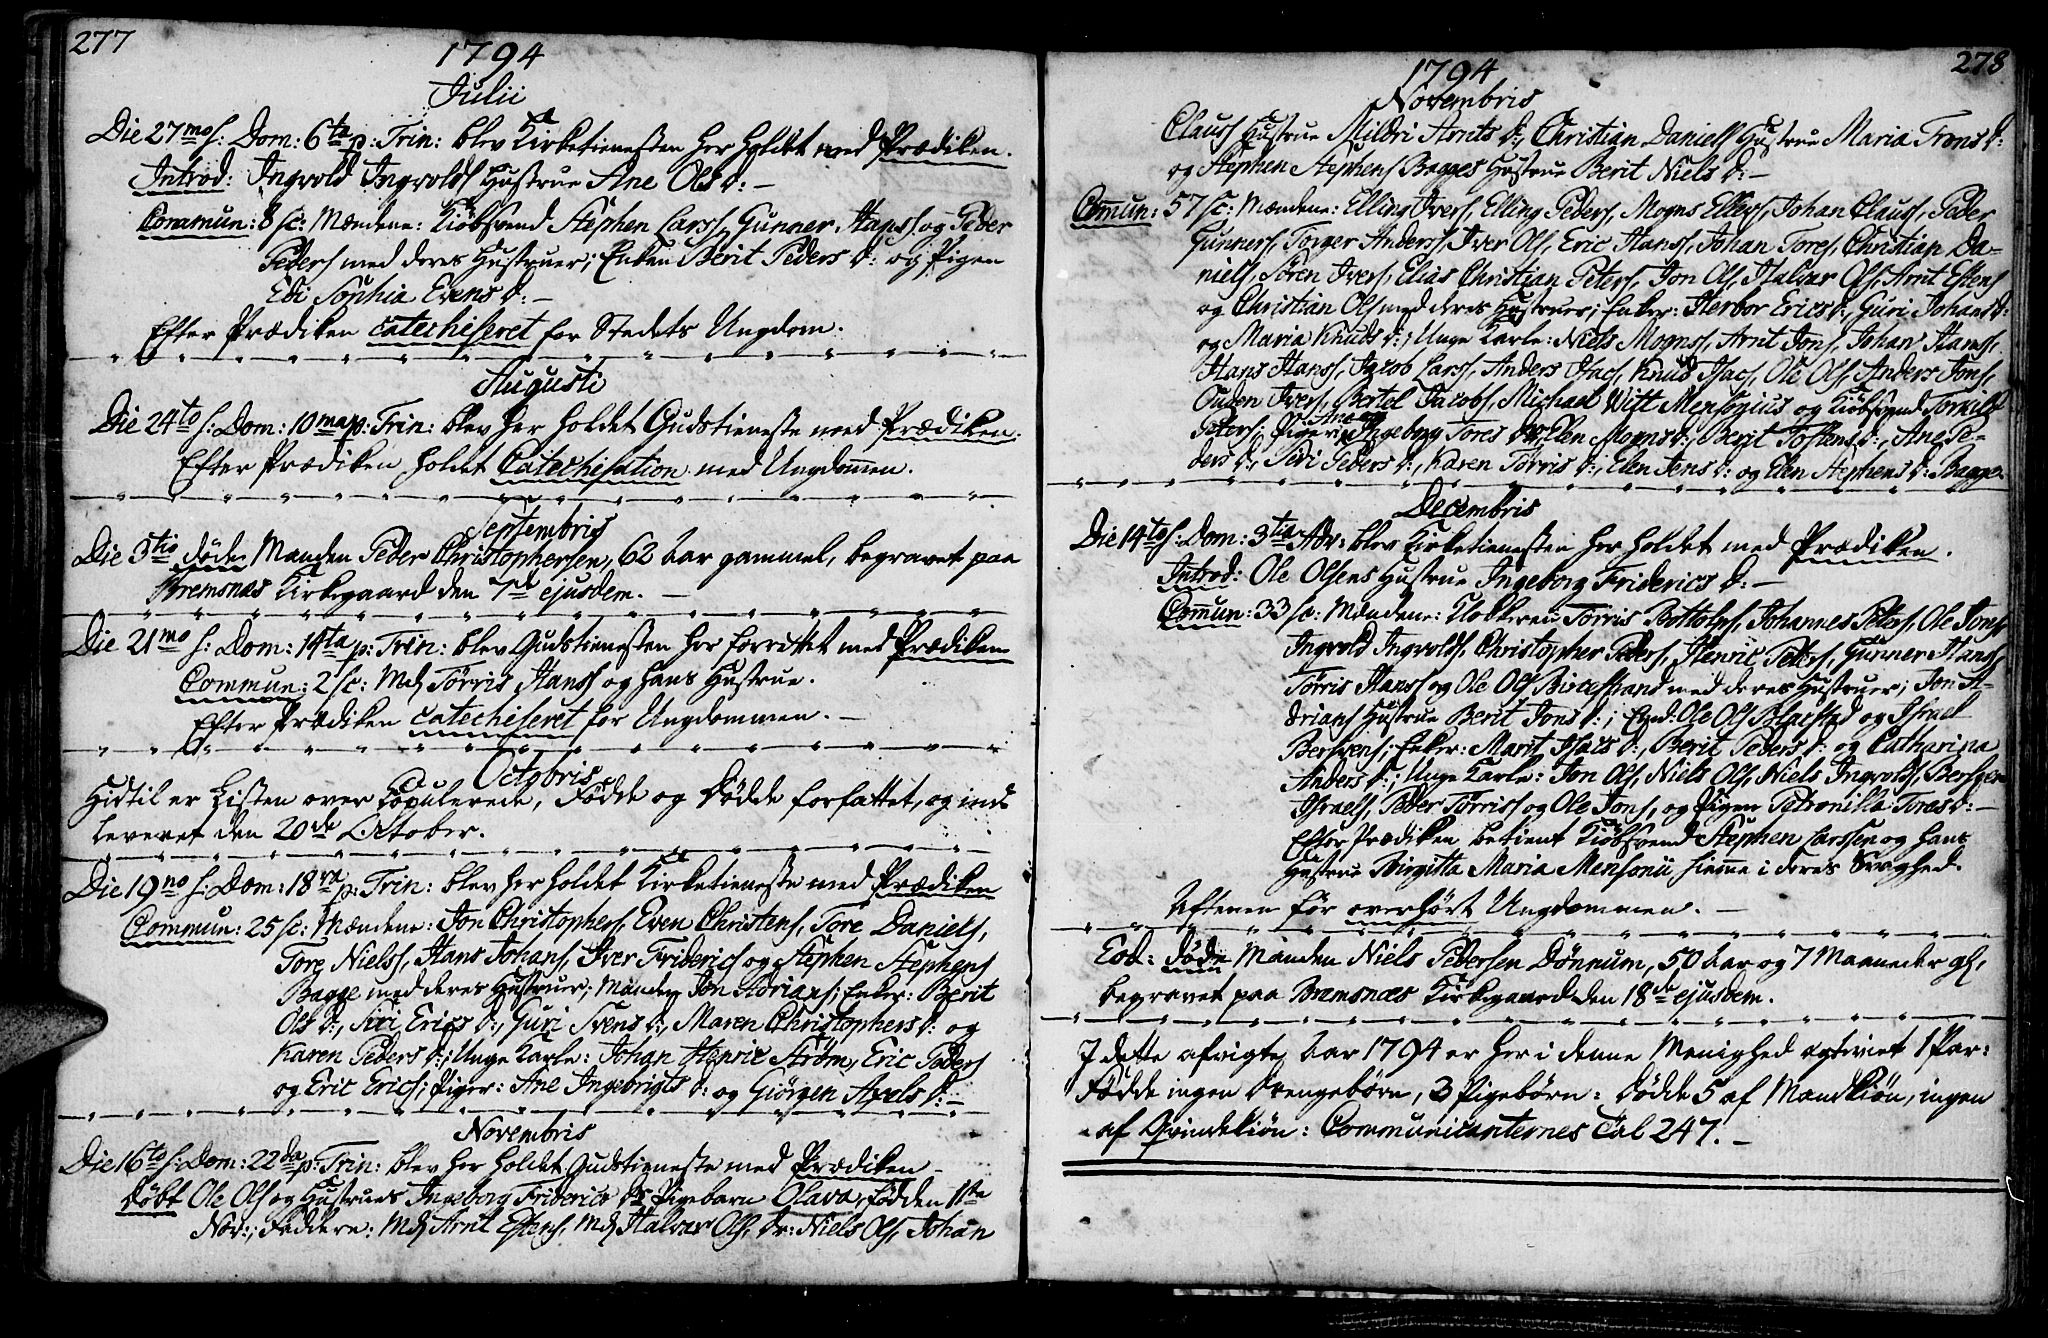 277
1794
Julii
Die 27mo s: Dom: 6ta p: Trin: blev Kirketienesten her holdet med Prædiken.
Introd: Ingvold Ingvolds Hustrue Ane Ols d: –
Commun: 8 sc: Mændene: Kiøbsvend Stephen Larss, Gunner Hanss og Peder
Peders med deres Hustruer; Enken Berit Peders d: og Pigen
Edi Sophia Evens d: –
Efter Prædiken catechiseret for Stedets Ungdom.
Augusti
Die 24to s: Dom: 10ma p: Trin: blev her holdet Gudstieneste med Prædiken.
Efter Prædiken holdet Catechisation med Ungdommen.
Septembris
Die 3tio døde Manden Peder Christophersen, 62 Aar gammel, begravet paa
Bremsnæs Kirkegaard den 7de ejusdem. –
Die 21mo s: Dom: 14ta p: Trin: blev Gudstienesten her forrettet med Prædiken
Commun: 2 sc: Md Tørris Hanss og hans Hustrue.
Efter Prædiken catechiseret for Ungdommen. –
Octobris
Hidtil er Listen over Copulerede, Fødde og Dødde forfattet, og ind-
leveret den 20de October.
Die 19no s: Dom: 18va p: Trin: blev her holdet Kirketieneste med Prædiken
Commun: 25 sc: Mændene: Jon Christophers, Even Christens, Tore Daniels,
Tore Nielss, Hans Johans, Iver Friderics og Stephen Stephens
Bagge med deres Hustruer; Manden Jon Adrians; Enker: Berit
Ols d:, Siri Erics d:, Guri Svens d:, Maren Christophers d: og
Karen Peders d:; Unge Karle: Johan Henric Strøm, Eric Peders
og Eric Erics; Piger: Ane Ingebrigts d: og Giørgen Axels d: –
Novembris
Die 16to s: Dom: 22da p: Trin: blev her holdet Gudstieneste med Prædiken –
Døbt Ole Ols og Hustrues Ingeborg Friderics ds Pigebarn Olava, fød den 11te
Nov:; Faddere: Md Arnt Estens, Md Halvar Ols, Dr: Niels Ols, Johan
278
1794
Novembris
Clauss Hustrue Mildri Arnts d:, Christian Daniels Hustrue Maria Trons d:
og Stephen Stephens Bagges Hustrue Berit Niels d: –
Commun: 57 sc: Mændene: Elling Ivers, Elling Peders, Mogns Ellevs, Johan Clauss, Peder
Gunners, Torger Anderss, Iver Ols, Eric Hanss, Johan Tores, Christian Da-
niels, Søren Ivers, Elias Christian Peters, Jon Ols, Halvar Ols, Arnt Estens
og Christian Ols med deres Hustruer; Enker: Herbor Erics d:, Guri Johans d:
og Maria Knuds d:; Unge Karle: Niels Mognss, Arnt Jons, Johan Hanss,
Hans Hanss, Jacob Larss, Anders Isacs, Knud Isacs, Ole Ols, Anders Jons,
Ouden Ivers, Bertel Jacobs, Michael Witt Mensonius og Kiøbsvend Torkild
Peters; Piger: Ane og Ingeborg Tores dr, Elen Mogns d:, Berit Tostens d:, Ane Pe-
ders d:, Siri Peders d:, Karen Tørris d:, Elen Jens d: og Elen Stephens d: Bagge
Decembris
Die 14to s: Dom: 3tia Adv: blev Kirketienesten her holdet med Prædiken.
Introd: Ole Olsens Hustrue Ingeborg Friderics d: –
Commun: 33 sc: Mændene: Klokkeren Tørris Bottolvs, Johannes Peters, Ole Jons
Ingvold Ingvolds, Christopher Peders, Henric Peters, Gunner Hanss
Tørris Hanss og Ole Ols Bircestrand med deres Hustruer; Jon A-
drians Hustrue Berit Jons d:; Enkd: Ole Ols Blaestad og Israel
Bersvens; Enker: Marit Isacs d:, Berit Peders d: og Catharina
Anders d:; Unge Karle: Jon Ols, Niels Ols, Niels Ingvolds, Bersven
Israels, Peder Tørriss og Ole Jons, og Pigen Petronilla Tores d: –
Efter Prædiken betient Kiøbsvend Stephen Larssen og hans
Hustrue Birgitta Maria Mensonii hiemme i deres Svaghed.
Aftenen før overhørt Ungdommen. –
Eod: døde Manden Niels Pedersen Dønnum, 50 Aar og 7 Maaneder gl,
begravet paa Bremsnæs Kirkegaard den 18de ejusdem.
I dette afvigte Aar 1794 er her i denne Menighed egteviet 1 Par:
Fødde ingen Drengebørn, 3 Pigebørn: Dødde 5 af Mandkiøn, ingen
af Qvindekiøn: Communicanternes Tal 247. –